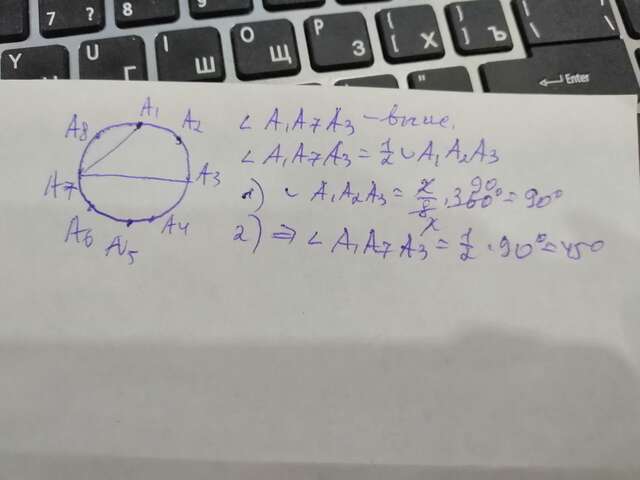 7 ? 8 9
Y U Г I Ш O Щ P З { [ Х } ] Ъ \
" Enter
A1
A8 A2
A7 A3
A6 A5 A4
∠ A1A7A3 – впис.
∠ A1A7A3 = 1/2 ◡ A1A2A3
1) ◡ A1A2A3 = 2/8 · 360° = 90°
90
2) ⇒ ∠ A1A7A3 = 1/2 · 90° = 450